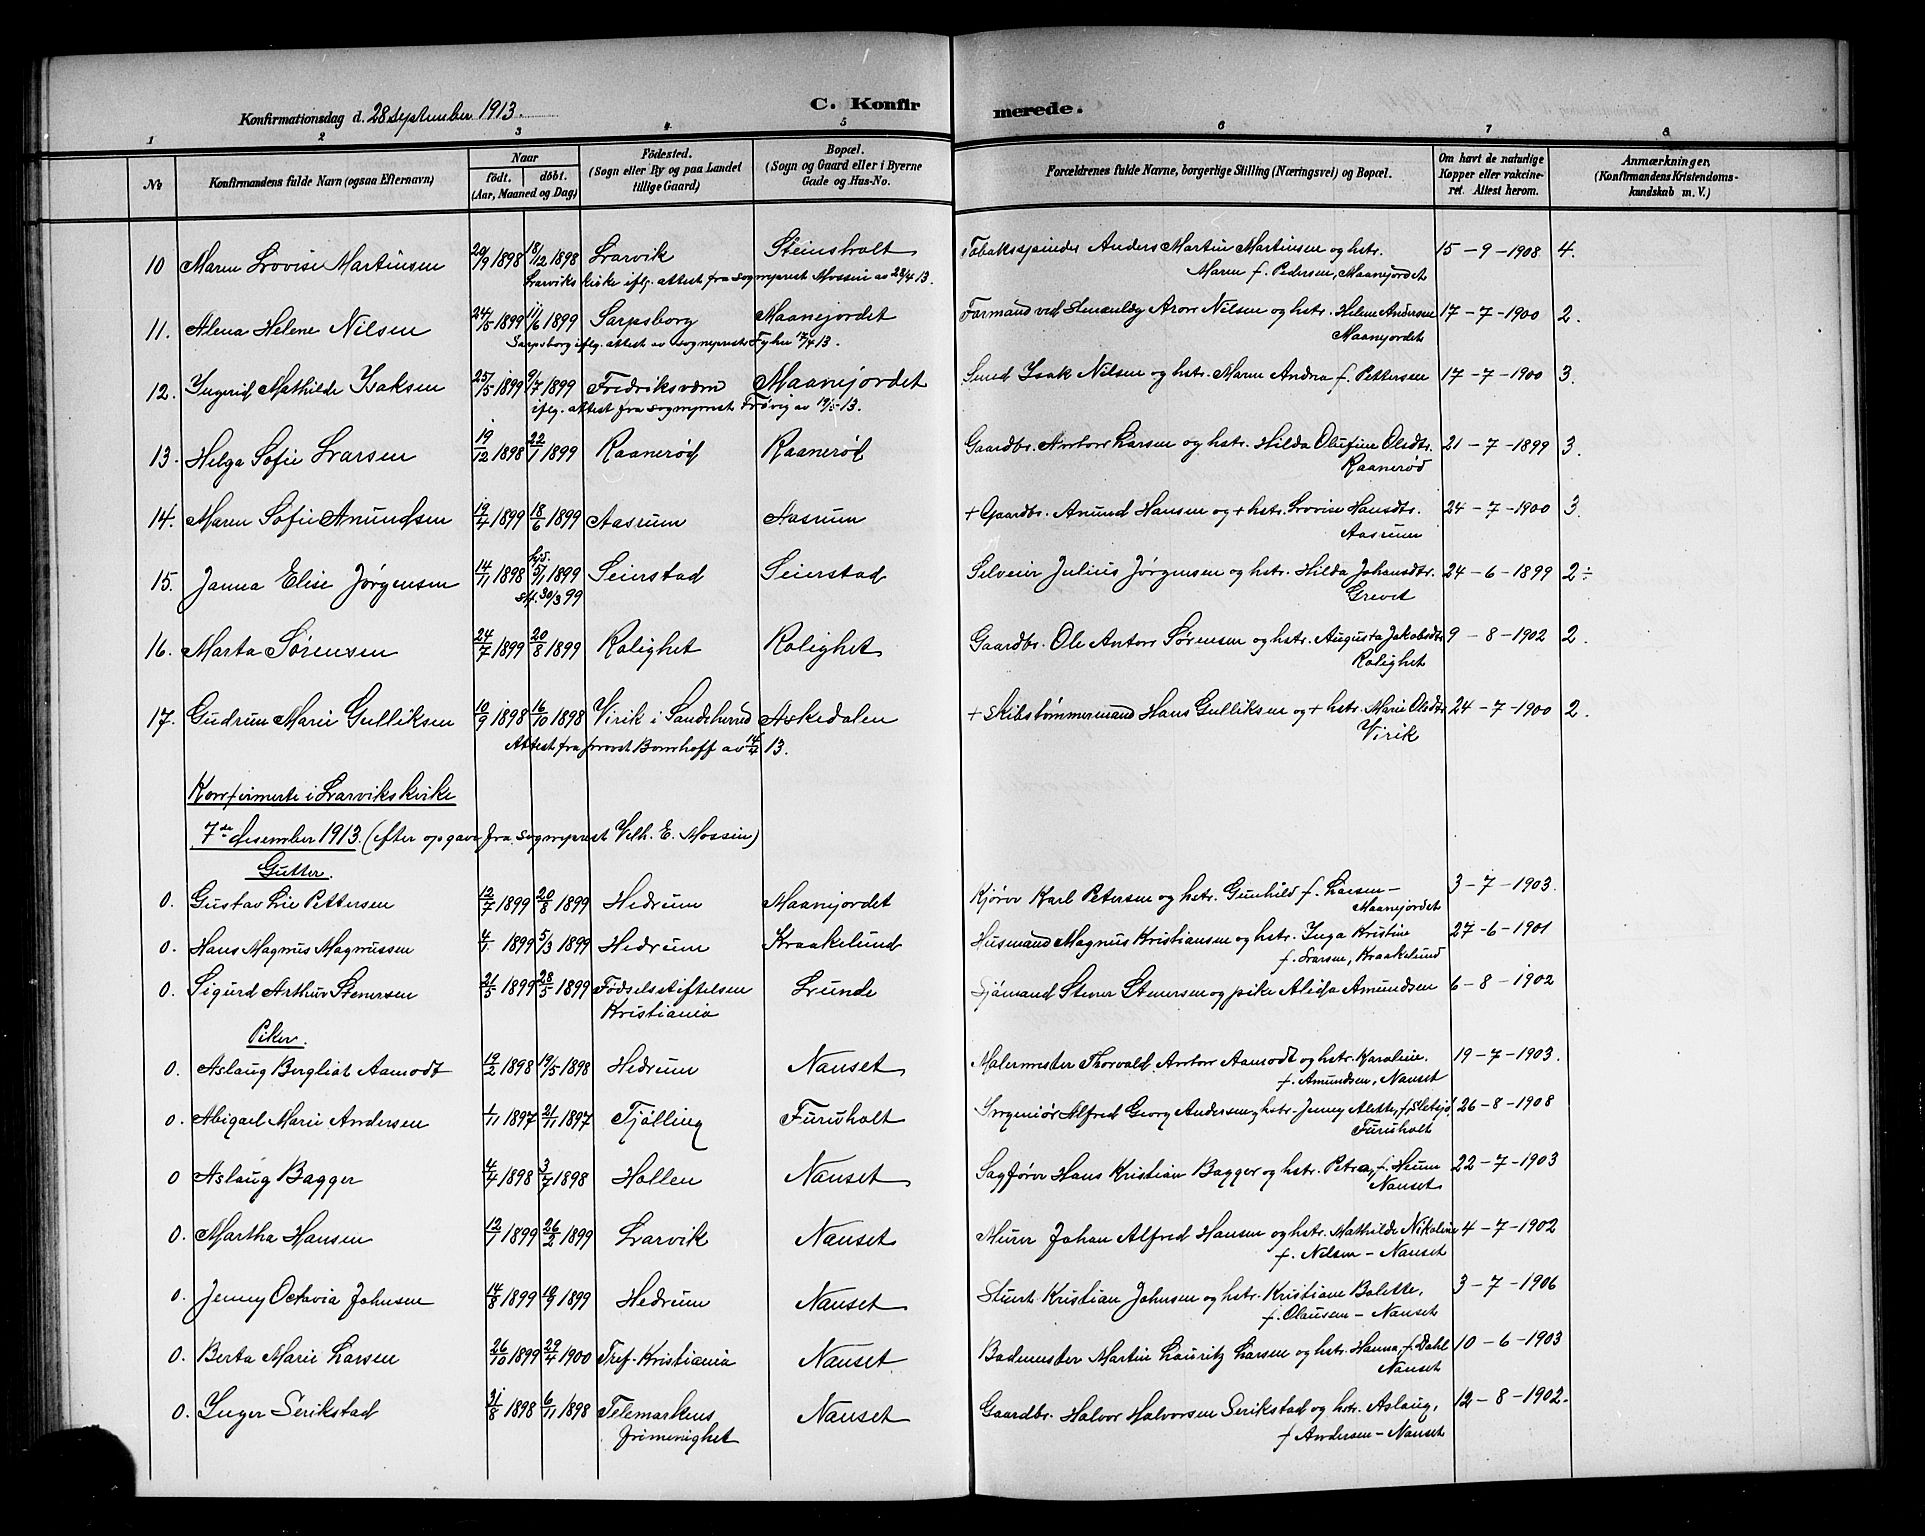 C. Konfirmerede.
Konfirmationsdag d. 28 september 1913.
1 2 3 4 5 6 7 8
No Konfirmandens fulde Navn (ogsaa Efternavn) Naar födt. döbt. (Aar, Maaned og Dag) Födested. (Sogn eller By og paa Landet tillige Gaard) Bopæl. (Sogn og Gaard eller i Byerne Gade og Hus-No. Forældrenes fulde Navne, borgerlige Stilling (Næringsvei) og Bopæl. Om havt de naturlige Kopper eller vakcineret. Attest herom. Anmærkninger, (Konfirmandens Kristendomskundskab m. V.)
10 Maren Lovise Martinsen 20/9 1898 18/12 1898 Larvik Steinsholt Tobaksspinder Anders Martin Martinsen og hstr. 15-9-1908 4.
Larviks kirke iflg. attest fra sogneprest Mossin av 28/4 13. Maren f. Pedersen, Maanejordet
11. Alena Helene Nilsen 24/5 1899 11/6 1899 Sarpsborg Maanejordet Formand ved Aron Nilsen og hstr. Helene Andersen 17-7-1900 2.
Sarpsborg iflg. attest av sogneprest 17/4 13. Maanejordet
12. Ingerid Mathilde Isaksen 25/5 1899 9/7 1899 Fredriksværn Maanejordet Smed Isak Nilsen og hstr. Maren Andrea f. Pettersen 17-7-1900 3.
iflg. attest fra sogneprest Frøvig av 19/5 13.
13. Helga Sofie Larsen 19/12 1898 22/1 1899 Raanerød Raanerød Gaardbr. Anton Larsen og hstr. Hilda Olufine Olsdtr. 21-7-1899 3.
Raanerød
14. Maren Sofie Anundsen 19/4 1899 18/6 1899 Aasrum Aasrum + Gaardbr. Anund Hansen og + hstr. Lovise Hansdtr. 24-7-1900 3.
Aasrum
15. Janna Elise Jørgensen 14/11 1898 hjd. 5/1 1899 Seierstad Seierstad Selveier Julius Jørgensen og hstr. Hilda Johansdtr. 24-6-1899 2÷
stf. 30/3 99 Grevet
16. Marta Sørensen 24/7 1899 20/8 1899 Rolighet Rolighet Gaardbr. Ole Anton Sørensen og hstr. Augusta Jakobsdtr 9-8-1902 2.
Rolighet
17. Gudrun Marie Gulliksen 10/9 1898 16/10 1898 Virik i Sandeherred Askedalen + Skibstømmermand Hans Gulliksen og + hstr. Marie Olsdtr 24-7-1900 2.
Attest fra provst Bomhoff av 14/4 13. Virik
Konfirmerte i Larviks kirke
7de desember 1913. (efter opgave fra sogneprest Vilh. E. Mossin)
Gutter.
0. Gustav Lie Pettersen 12/7 1899 20/8 1899 Hedrum Maanejordet Kjører Karl Petersen og hstr. Gunhild f. Larsen – 3-7-1903.
Maanejordet
0. Hans Magnus Magnussen 4/1 1899 5/3 1899 Hedrum Kraakelund Husmand Magnus Kristiansen og hstr. Inga Kristine 27-6-1901
f. Larsen, Kraakelund
0. Sigurd Arthur Stenersen 21/5 1899 28/5 1899 Fødselsstiftelsen Lunde Sjømand Stener Stenersen og pike Alida Amundsen 6-8-1902
Kristiania
Piker.
0. Aslaug Bergliot Aamodt 19/2 1898 19/5 1898 Hedrum Nanset Malermester Thorvald Anton Aamodt og hstr. Karoline, 19-7-1903.
f. Amundsen, Nanset
0. Abigael Marie Andersen 1/11 1897 21/11 1897 Tjølling Furuholt Ingeniør Alfred Georg Andersen og hstr. Jenny Alette, f. Sletsjø 26-8-1908
Furuholt
0 Aslaug Bagger 4/4 1898 3/7 1898 Hollen Nanset Sagfører Hans Kristian Bagger og hstr. Petra, f. Heum 22-7-1903
Nanset
0. Martha Hansen 12/1 1899 26/2 1899 Larvik Nanset Murer Johan Alfred Hansen og hstr. Mathilde Nikoline 4-7-1902
f. Nilsen – Nanset
0. Jenny Octavia Johnsen 14/8 1899 10/9 1899 Hedrum Nanset Kristian Johnsen og hstr. Kristiane Bolette, 3-7-1906
f. Olausen – Nanset
0. Berta Marie Larsen 26/10 1899 29/4 1900 Tref. Kristiania Nanset Bademester Martin Lauritz Larsen og hstr. Hanna, f. Dahl 10-6-1903
Nanset
0. Inger Serikstad 31/8 1898 6/11 1898 Telemarkens Nanset Gaardbr. Halvor Halvorsen Serikstad og hstr. Aslaug, 12-8-1902.
frimenighet f. Andersen – Nanset